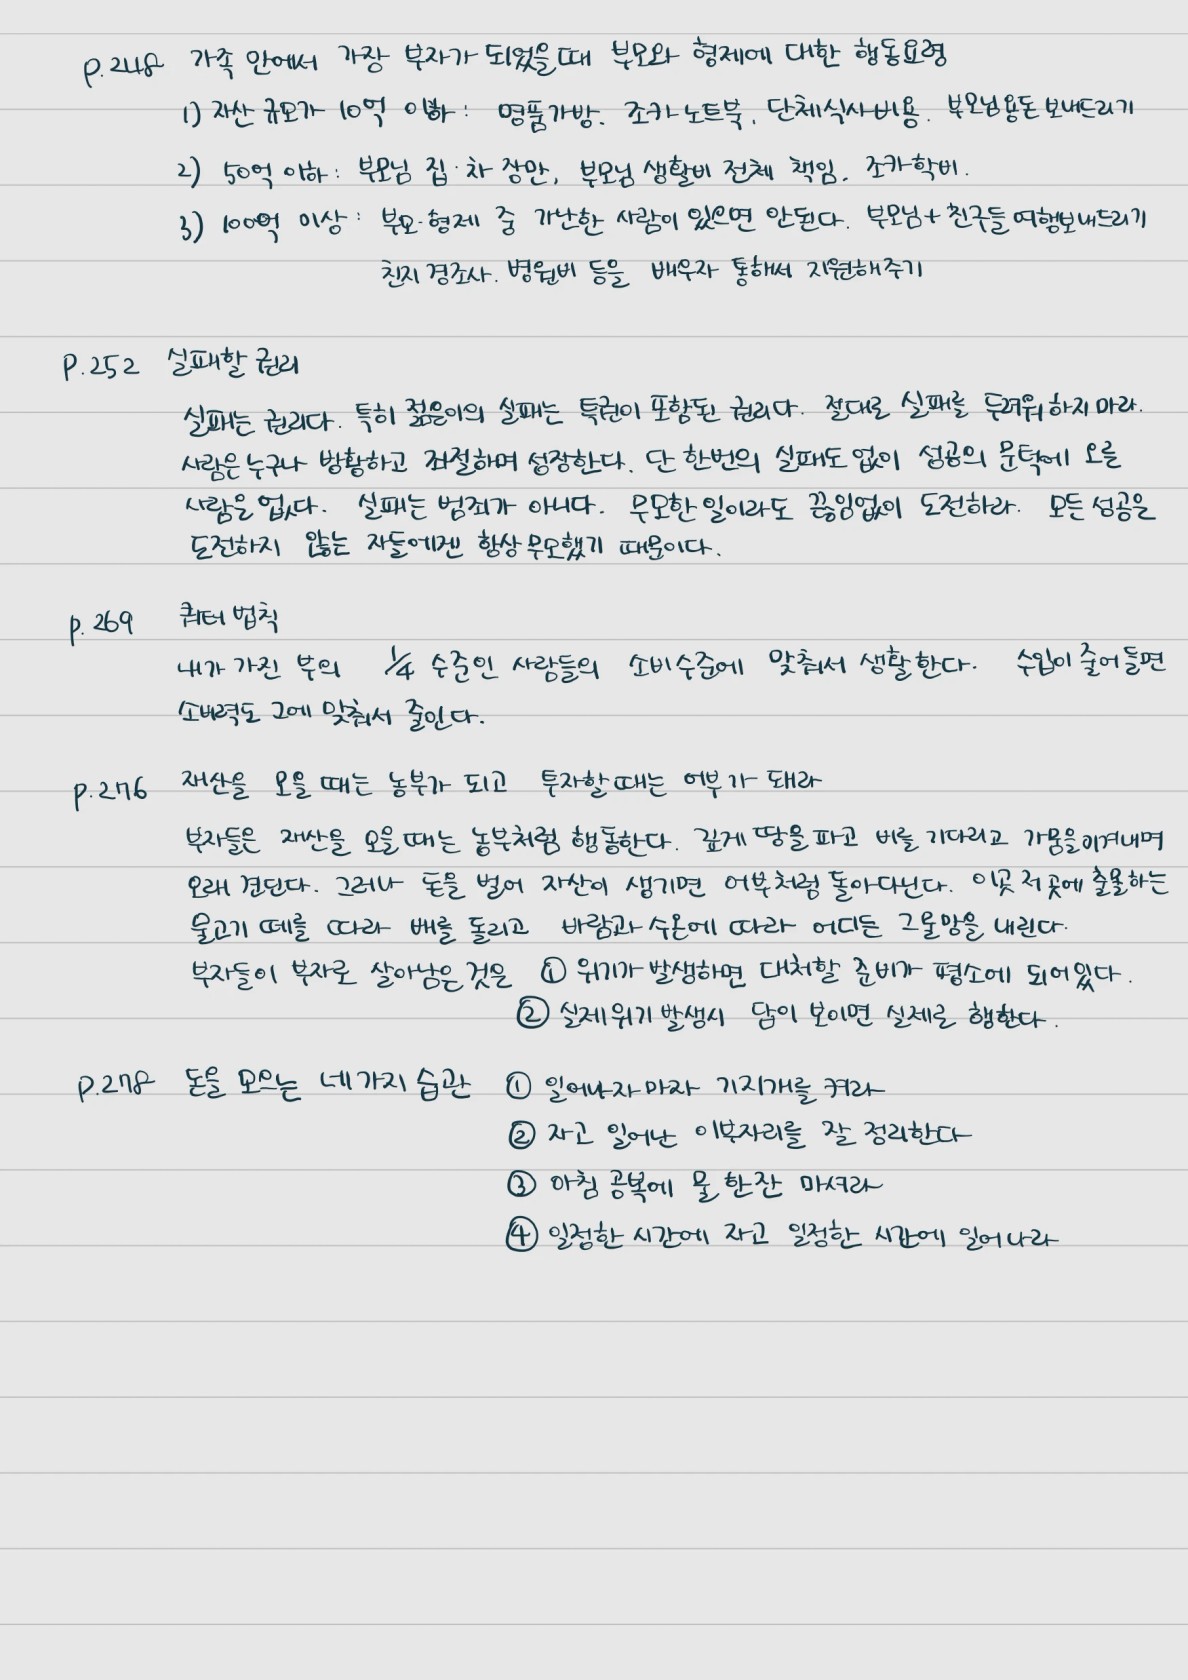 p.248 가족 안에서 가장 부자가 되었을때 부모와 형제에 대한 행동요령
1) 자산 규모가 10억 이하 : 명품가방, 조카노트북, 단체식사비용, 부모님용돈 보내드리기
2) 50억 이하 : 부모님 집·차 장만, 부모님 생활비 전체 책임, 조카학비.
3) 100억 이상 : 부모·형제 중 가난한 사람이 있으면 안된다. 부모님+친구들 여행보내드리기
친지 경조사. 병원비 등을 배우자 통해서 지원해주기
P.252 실패할 권리
실패는 권리다. 특히 젊은이의 실패는 특권이 포함된 권리다. 절대로 실패를 두려워하지마라.
사람은 누구나 방황하고 좌절하며 성장한다. 단 한번의 실패도 없이 성공의 문턱에 오를
사람은 없다. 실패는 범죄가 아니다. 무모한 일이라도 끊임없이 도전하라. 모든 성공은
도전하지 않는 자들에겐 항상 무모했기 때문이다.
p.269 쿼터 법칙
내가 가진 부의 1/4 수준인 사람들의 소비수준에 맞춰서 생활한다. 수입이 줄어들면
소비력도 그에 맞춰서 줄인다.
p.276 재산을 모을 때는 농부가 되고 투자할때는 어부가 돼라
부자들은 재산을 모을때는 농부처럼 행동한다. 깊게 땅을 파고 비를 기다리고 가뭄을이겨내며
오래 견딘다. 그러나 돈을 벌어 자산이 생기면 어부처럼 돌아다닌다. 이곳 저곳에 출몰하는
물고기 떼를 따라 배를 돌리고 바람과 수온에 따라 어디든 그물망을 내린다.
부자들이 부자로 살아남은 것은 ① 위기가 발생하면 대처할 준비가 평소에 되어있다.
② 실제위기 발생시 답이 보이면 실제로 행한다.
p.278 돈을 모으는 네가지 습관 ① 일어나자마자 기지개를 켜라
② 자고 일어난 이부자리를 잘 정리한다
③ 아침 공복에 물 한잔 마셔라
④ 일정한 시간에 자고 일정한 시간에 일어나라